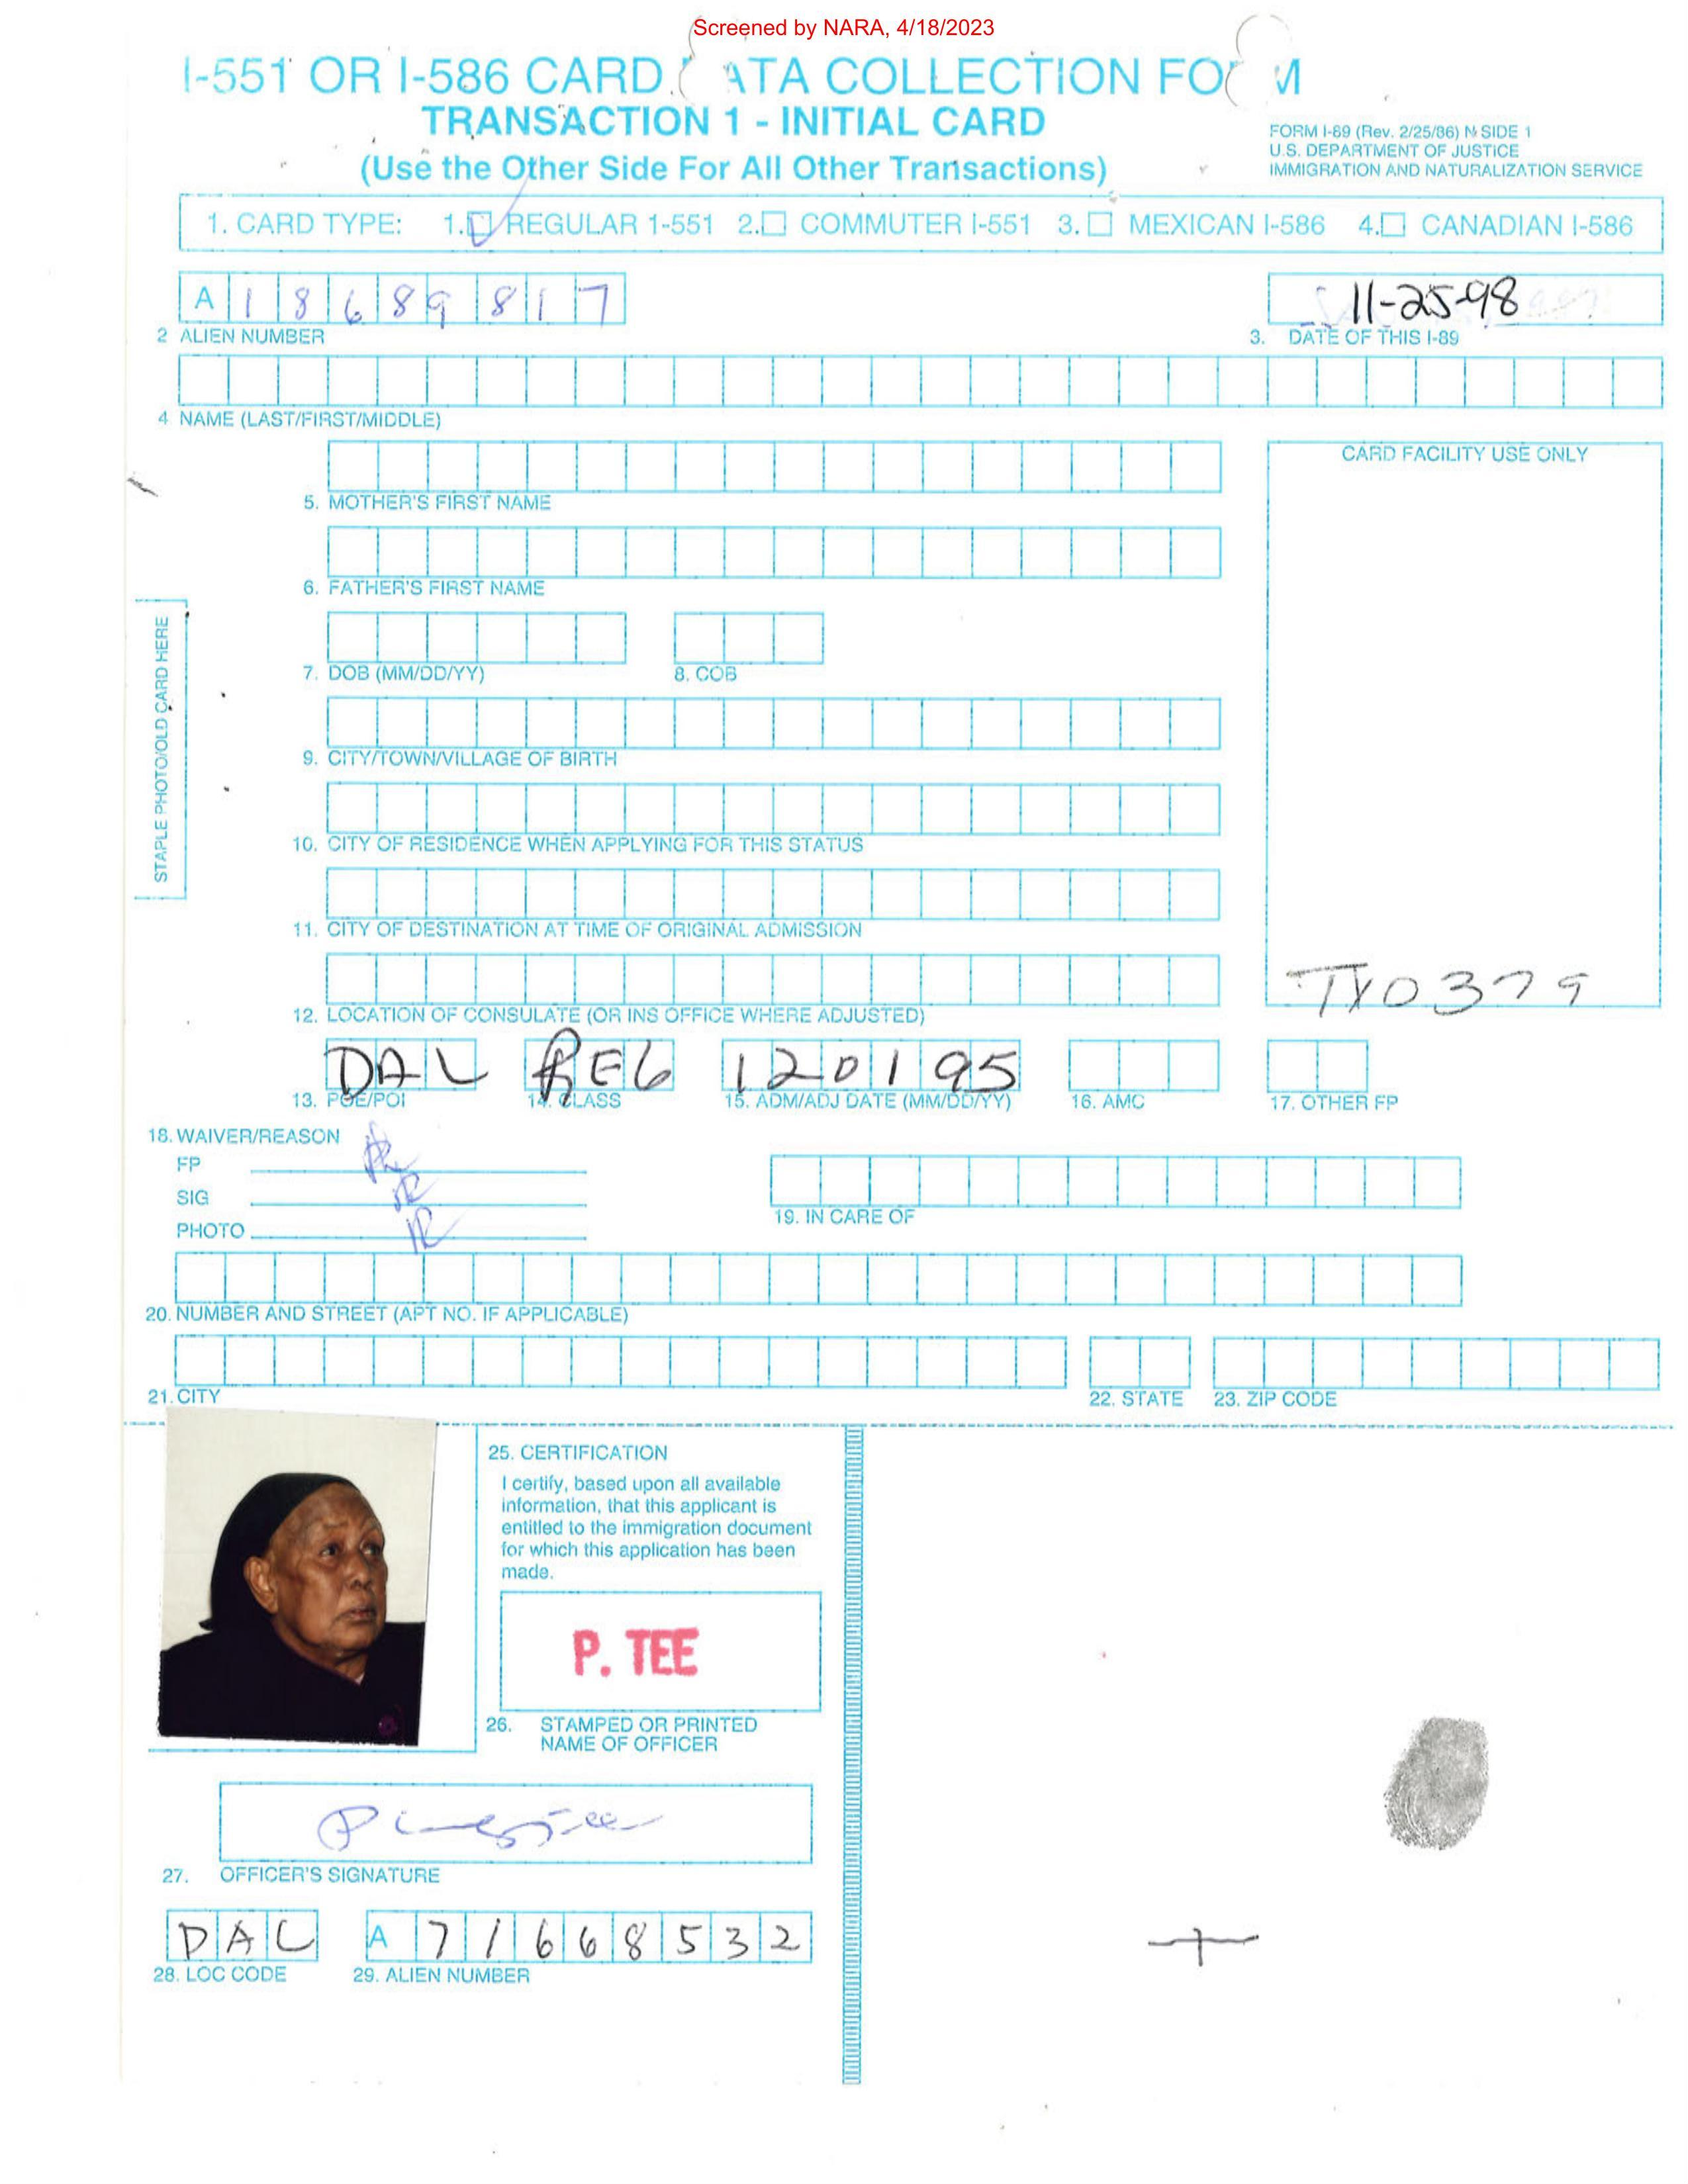 Screened by NARA, 4/18/2023
I-551 OR I-586 CARD ATA COLLECTION FO M
TRANSACTION 1 - INITIAL CARD
(Use the Other Side For All Other Transactions)
FORM I-89 (Rev. 2/25/86) N SIDE 1
U.S. DEPARTMENT OF JUSTICE
IMMIGRATION AND NATURALIZATION SERVICE
1. CARD TYPE: 1.☐ REGULAR 1-551 2.☐ COMMUTER I-551 3.☐ MEXICAN I-586 4.☐ CANADIAN I-586
A 18689817
11-25-98
2 ALIEN NUMBER
3. DATE OF THIS I-89
4 NAME (LAST/FIRST/MIDDLE)
CARD FACILITY USE ONLY
5. MOTHER'S FIRST NAME
6. FATHER'S FIRST NAME
STAPLE PHOTO/OLD CARD HERE
7. DOB (MM/DD/YY) 8. COB
9. CITY/TOWN/VILLAGE OF BIRTH
10. CITY OF RESIDENCE WHEN APPLYING FOR THIS STATUS
11. CITY OF DESTINATION AT TIME OF ORIGINAL ADMISSION
TX0379
12. LOCATION OF CONSULATE (OR INS OFFICE WHERE ADJUSTED)
DAL RE6 120195
13. POE/POI 14. CLASS 15. ADM/ADJ DATE (MM/DD/YY) 16. AMC 17. OTHER FP
18. WAIVER/REASON
FP
SIG
PHOTO
19. IN CARE OF
20. NUMBER AND STREET (APT NO. IF APPLICABLE)
21. CITY 22. STATE 23. ZIP CODE
25. CERTIFICATION
I certify, based upon all available
information, that this applicant is
entitled to the immigration document
for which this application has been
made.
P. TEE
26. STAMPED OR PRINTED
NAME OF OFFICER
27. OFFICER'S SIGNATURE
DAL A 71668532
28. LOC CODE 29. ALIEN NUMBER